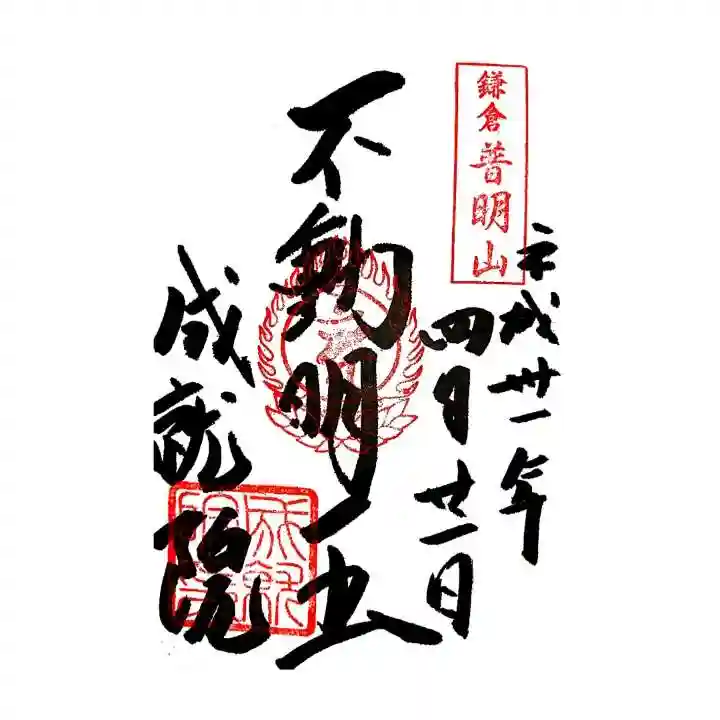 鎌倉普明山
平成卅一年
四月廿一日
不動明王
成就院